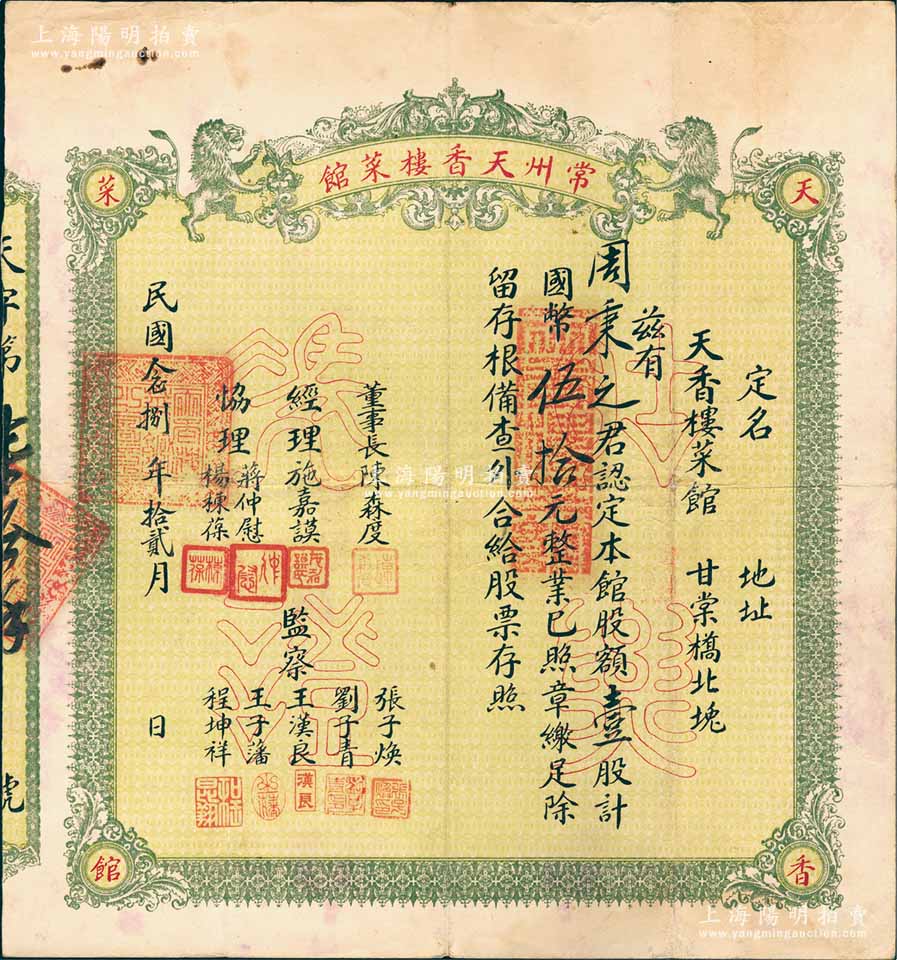 上海陽明拍賣
www.yangmingauction.com
常州天香樓菜館
天
香
菜
館
定名
天香樓菜館
地址
甘棠橋北堍
茲有
周秉之君認定本館股額壹股計
國幣伍拾元整業已照章繳足除
留存根備查外合給股票存照
董事長陳森度
經理施嘉謨
協理蔣仲慰
楊棟葆
監察
張子煥
劉子青
王漢良
王子藩
程坤祥
漢良
民國念捌年拾貳月
日
天字第
號
上海陽明拍賣
www.yangmingauction.com
上海陽明拍賣
www.yangmingauction.com